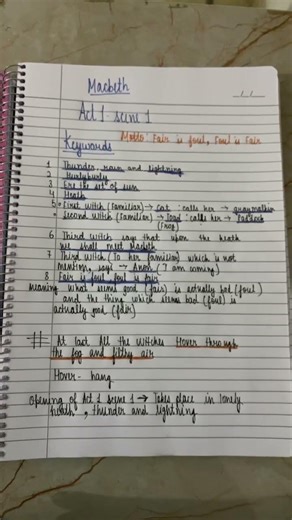 Macbeth
Act 1 scene 1
Motto: Fair is foul, Foul is Fair
Keywords
1 Thunder rain and lightning
2 Hurlyburly
3 Ere the set of sun
4 Heath
5 • First witch (Familiar) → Cat : calls her → graymalkin
• Second witch (Familiar) → Toad : calls her → Paddock
(Frog)
6 Third witch says that upon the heath
we shall meet Macbeth
7 Third witch (To her familiar) which is not
mention, says → Anon (I am coming)
8 Fair is foul, foul is fair
Meaning what seems good (fair) is actually bad (foul)
and the thing which seems bad (foul) is
actually good (fair)
# At last All the witches Hover through
the fog and filthy air
Hover - hang
Opening of Act 1 scene 1 → Takes place in lonely
heath, thunder and lightning